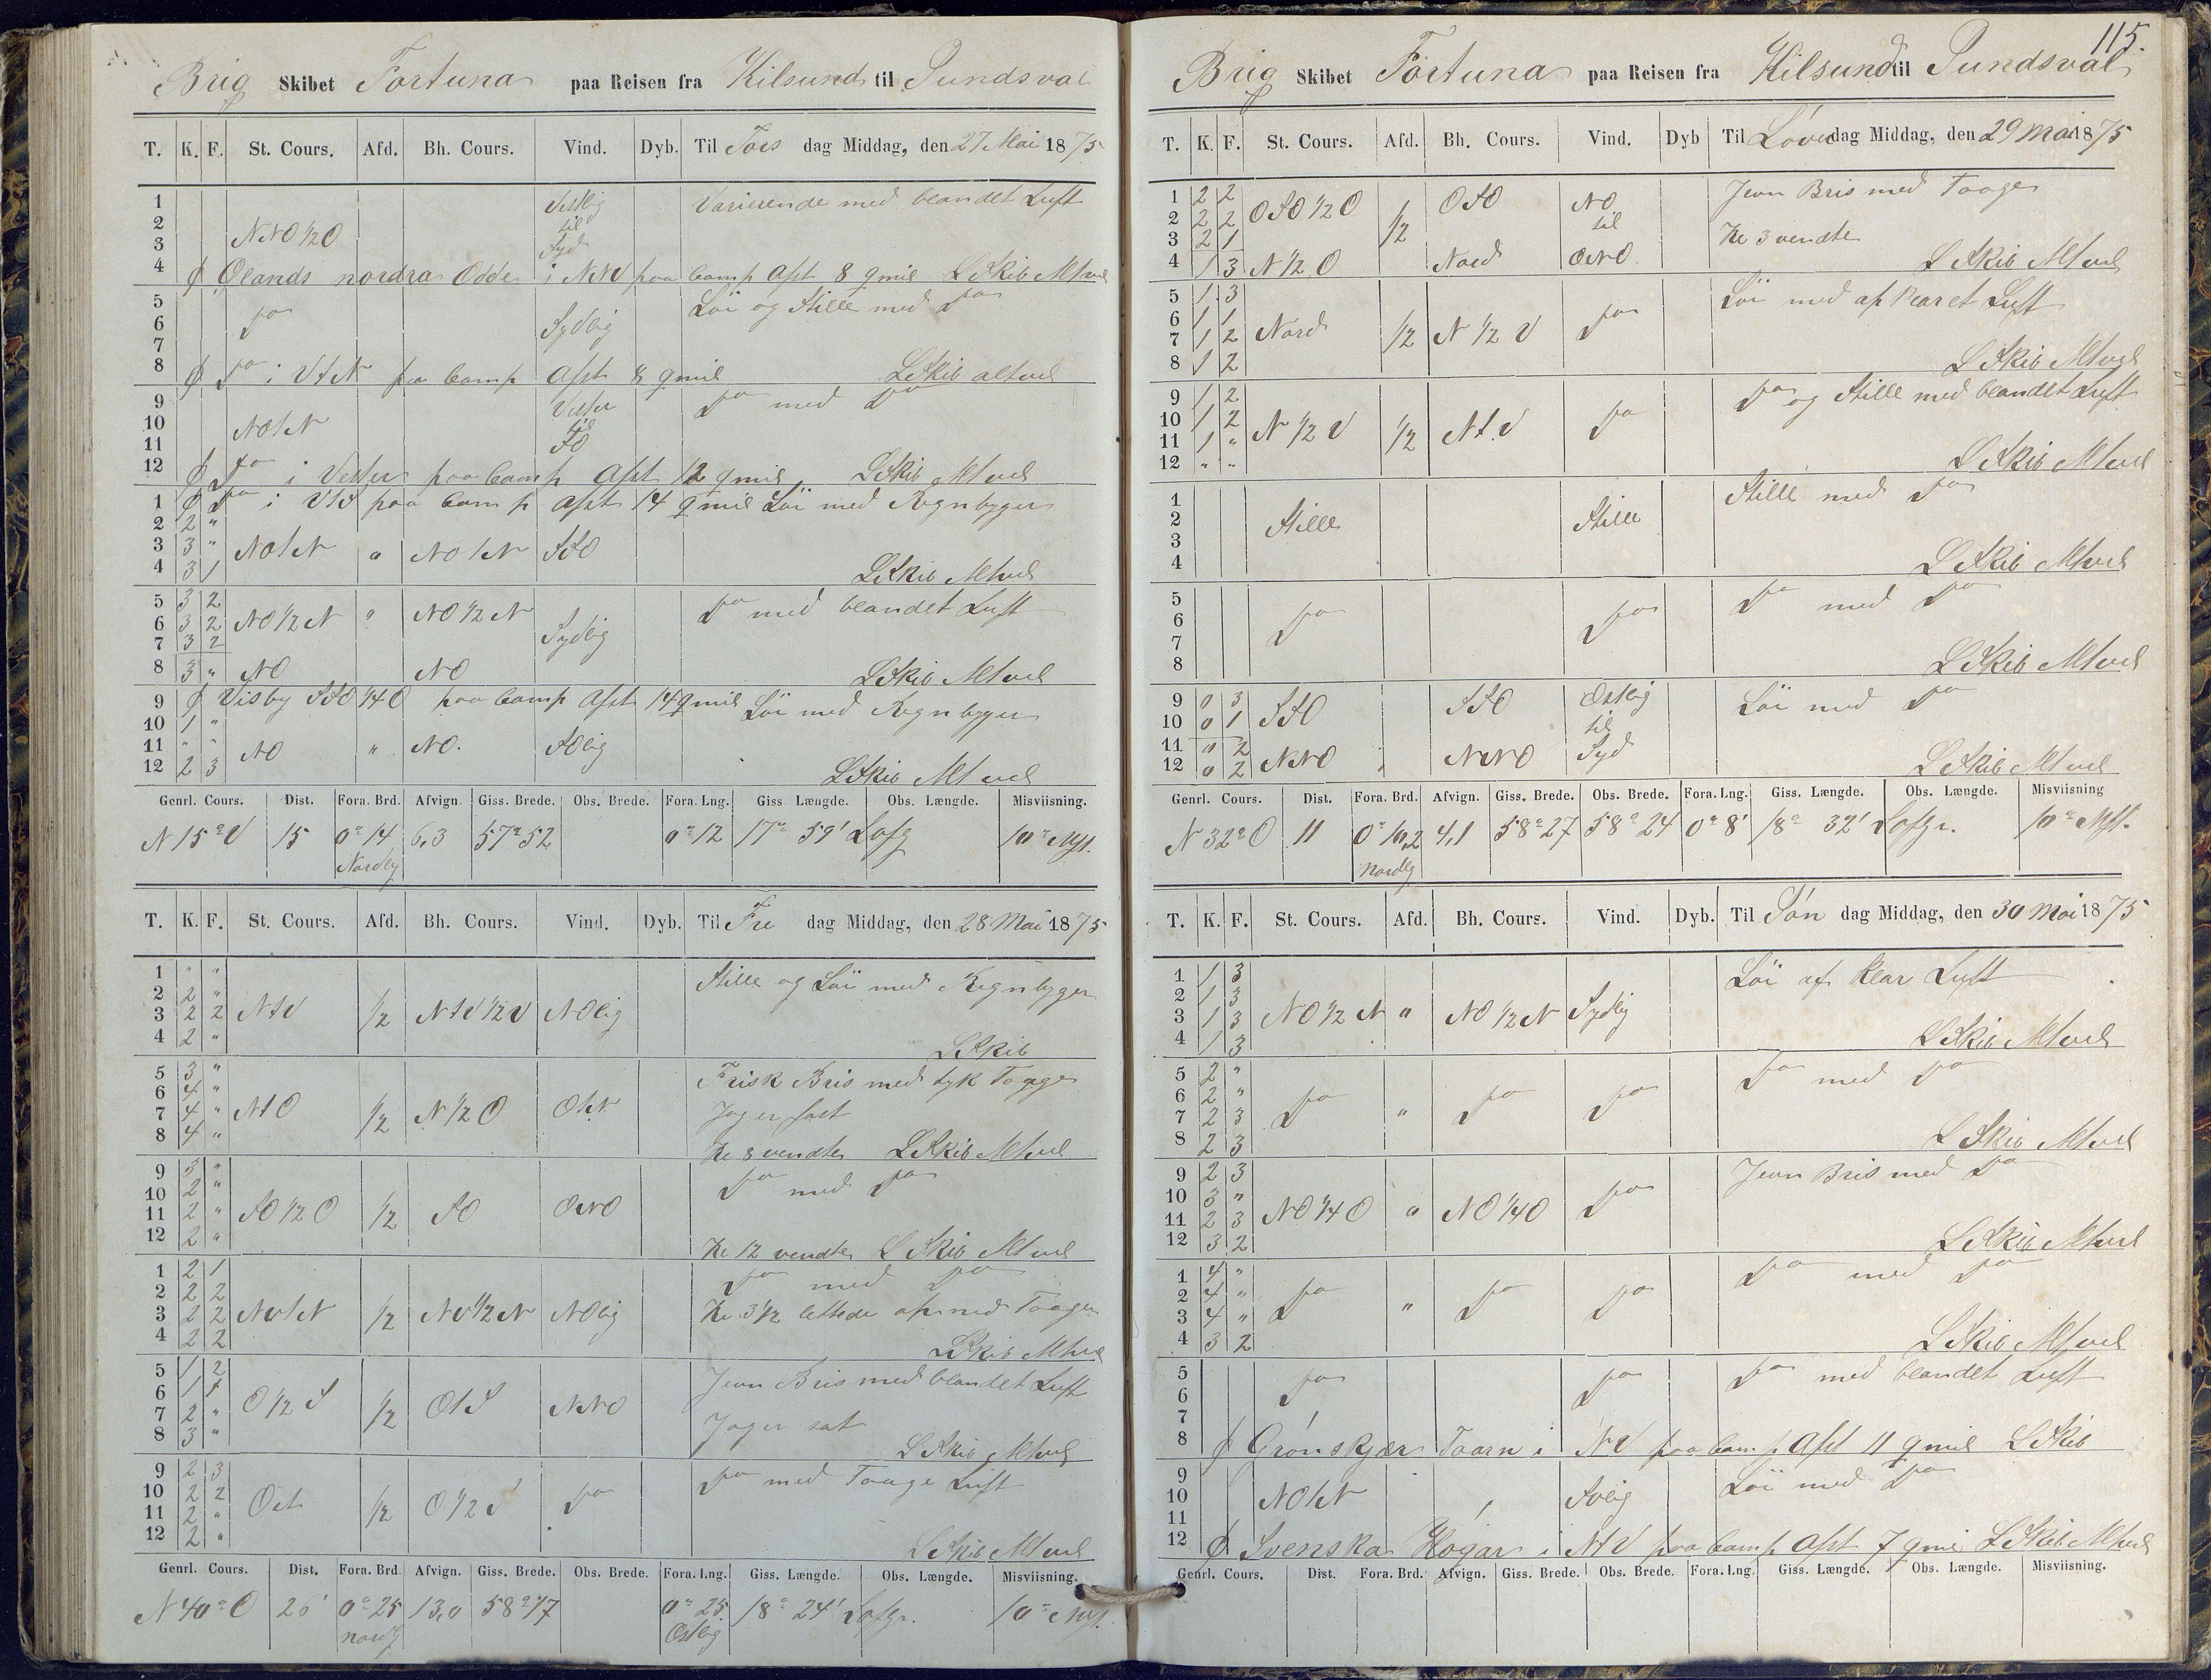 Brig Skibet Fortuna paa Reisen fra Kilsund til Sundsval
T. K. F. St. Cours. Afd. Bh. Cours. Vind. Dyb. Til Tors dag Middag, den 27 Mai 1875
1 Vestlig Varierende med blandet Luft
2 til
3 NNO 1/2 O Syd
4 ₵ Ølands nordra Odde i NNV paa Comp Afst 8 qmil L Skib Alt vel
5 Løi og Stille med Do
6 Do Sydlig
7
8 ₵ Do i VtN pa Comp Afst 8 qmil L Skib alt vel
9 Vester Do med Do
10 NOtN til
11 SO
12 ₵ Do i Vester paa Comp Afst 12 qmil L Skib Alt vel
1 ₵ Do i VtS paa Comp Afst 14 qmil Løi med Regnbyger
2 2 "
3 3 " NOtN " NOtN SSO
4 3 1 L Skib Alt vel
5 3 2 Do med blandet Luft
6 3 2 NO 1/2 N " NO 1/2 N
7 3 2 Sydlig
8 3 " NO NO L Skib Alt vel
9 ₵ Visby SSO 1/4 O paa Comp Afst 14 qmil Løi med Regnbyger
10 1 "
11 " " NO " NO. SOlig
12 2 3 L Skib Alt vel
Genrl. Cours. Dist. Fora. Brd. Afvign. Giss. Brede. Obs. Brede. Fora. Lng. Giss Længde. Obs. Længde. Misviisning.
N 15° V 15 0° 14 6,3 57° 52 0° 12 17° 59' Lofg 10° NVst.
Nordlig
T. K. F. St. Cours. Afd. Bh. Cours. Vind. Dyb. Til Fre dag Middag, den 28 Mai 1875
1 " " Stille og Løi med Regnbyger
2 2 "
3 2 2 NtV 1/2 NtV 1/2 V NOlig
4 2 " L Skib
5 3 " Frisk Bris med tyk Taage
6 4 "
7 4 " NtO 1/2 N 1/2 O OtN Jager fast
8 4 " Kl 8 vendte L Skib Alt vel
9 3 " Do med Do
10 2 "
11 2 " SO 1/2 O 1/2 SO ONO
12 2 " Kl 12 vendte L Skib Alt vel
1 2 1 Do med Do
2 2 2
3 2 2 NVtN 1/2 NV 1/2 N NOlig Kl 3 1/2 lettede af med Taagen
4 2 2 L Skib Alt vel
5 1 2 Jevn Bris med blandet Luft
6 1
7 2 " O 1/2 S 1/2 OtS NNO Jager sat
8 3 " L Skib Alt vel
9 2 3 Do med Taage Luft
10 2 2
11 2 " Ost 1/2 O 1/2 S Do
12 2 " L Skib Alt vel
Genrl. Cours. Dist. Fora. Brd. Afvign. Giss. Brede. Obs. Brede. Fora. Lng. Giss. Længde. Obs. Længde. Misviisning.
N 40° O 26' 0° 25 13,0 58° 17 0° 25 18° 24' Lofgr. 10° NVst.
Nordl Østlig
115.
Brig Skibet Fortuna paa Reisen fra Kilsund til Sundsval
T. K. F. St. Cours. Afd. Bh. Cours. Vind. Dyb Til Løver dag Middag, den 29 Mai 1875
1 2 2 Jevn Bris med Taage
2 2 2 OSO 1/2 O OSO NO
3 2 1 1/2 til Kl 3 vendte
4 1 3 N 1/2 O Nord ONO L Skib Alt vel
5 1 3 Løi med af klaret Luft
6 1 1
7 1 2 Nord 1/2 N 1/2 V Do
8 1 2 L Skib Alt vel
9 1 2 Do og Stille med blandet Luft
10 1 2
11 1 " N 1/2 V 1/2 NtV Do
12 " " L Skib Alt vel
1 Stille med Do
2 Stille Stille
3
4 L Skib Alt vel
5 Do med Do
6 Do Do
7
8 L Skib Alt vel
9 0 3 Østlig Løi med Do
10 0 1 SSO SSO til
11 0 2 Syd
12 0 2 NNO " NNO L Skib Alt vel
Genrl. Cours. Dist. Fora. Brd. Afvign. Giss. Brede. Obs. Brede. Fora. Lng. Giss. Længde. Obs. Længde. Misviisning
N 32° O 11 0° 10,2 4,1 58° 27 58° 24 0° 8' 18° 32' Lofgr. 10° NVst.
Nordlig
T. K. F. St. Cours. Afd. Bh. Cours. Vind. Dyb. Til Søn dag Middag, den 30 Mai 1875
1 1 3 Løi af klar Luft
2 1 3
3 1 3 NO 1/2 N " NO 1/2 N Sydlig
4 1 3 L Skib Alt vel
5 2 " Do med Do
6 2 "
7 2 3 Do " Do Do
8 2 3 L Skib Alt vel
9 2 3 Jevn Bris med Do
10 3 "
11 2 3 NO 1/4 O " NO 1/4 O Do
12 3 2 L Skib Alt vel
1 4 " Do med Do
2 4 "
3 4 " Do " Do Do
4 3 2 L Skib Alt vel
5 Do Do Do med blandet Luft
6
7
8 ₵ Grønskjær Taarn i NV paa Comp Afst 11 qmil L Skib
9 Løi med Do
10 NOtN SOlig
11
12 ₵ Svenska Høgar i NtV paa Comp Afst 7 qmil L Skib Alt vel
Genrl. Cours. Dist. Fora. Brd. Afvign. Giss. Brede. Obs. Brede. Fora. Lng. Giss. Længde. Obs. Længde. Misviisning.